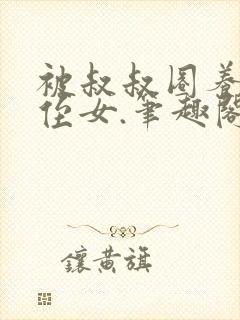 被叔叔圈养
侄女.笔趣阁
鑲黄旗